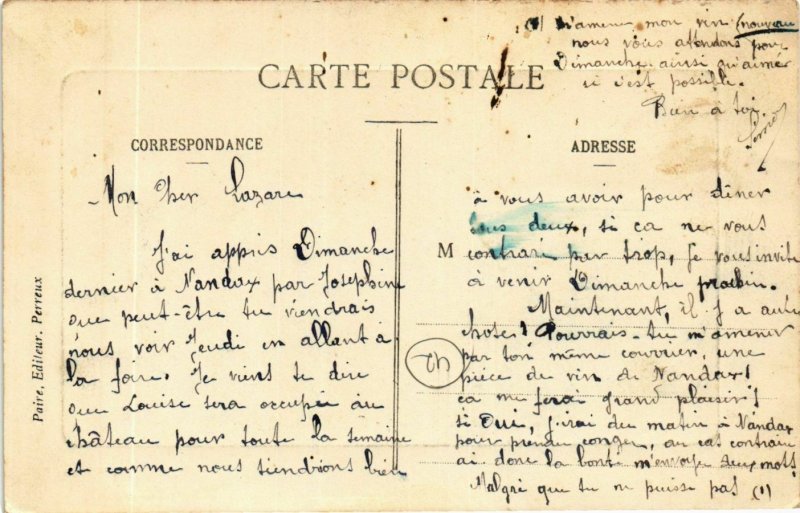 CARTE POSTALE
CORRESPONDANCE
Mon cher Lazare
J'ai appris Dimanche
dernier à Nandax par Joséphine
que peut-être tu viendrais
nous voir Jeudi en allant à
la foire. Je viens te dire
que Louise sera occupée au
château pour toute la semaine
et comme nous tiendrions bien
ADRESSE
à vous avoir pour dîner
tous deux, si ca ne vous
M contrarie par trop, je vous invite
à venir Dimanche prochain.
Maintenant, il y a autre
chose! Pourrais-tu m'amener
par ton même courrier, une
pièce de vin de Nandax!
ca me ferai grand plaisir!
si Oui, j'irai du matin à Nandax
pour prendre congé, au cas contraire
ai donc la bonté m'envoyer deux mots
Malgré que tu ne puisse pas (1)
(1) m'amener mon vin nouveau
nous vous attendons pour
Dimanche ainsi qu'aimée
si c'est possible.
Bien à toi
42
Paire, Editeur, Perreux